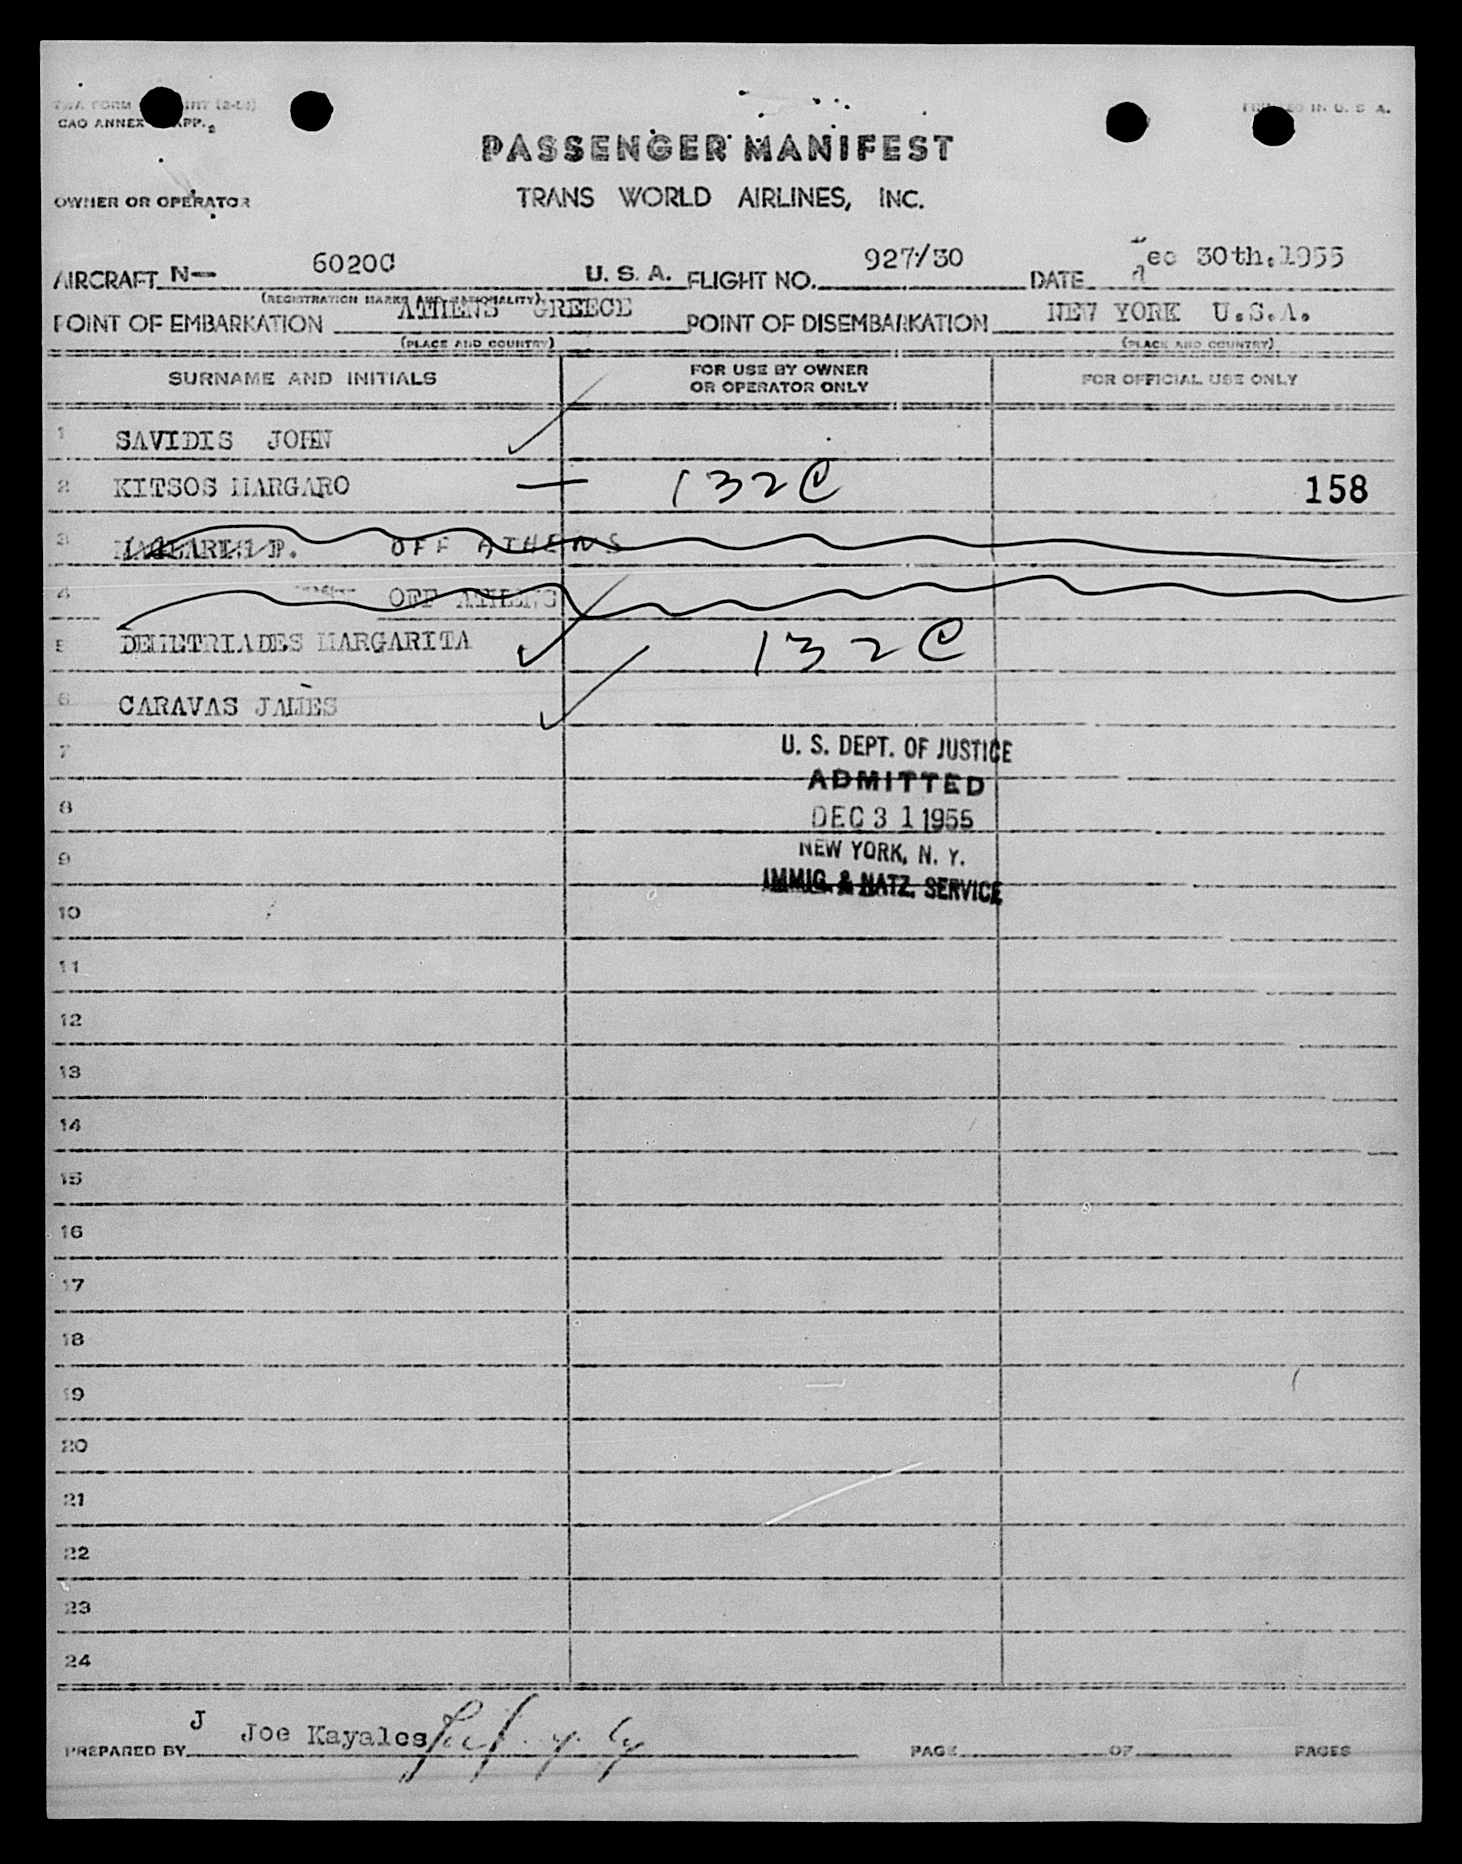 CAO ANNEX APP.
PRINTED IN U. S. A.
PASSENGER MANIFEST
OWNER OR OPERATOR TRANS WORLD AIRLINES, INC.
AIRCRAFT N— 6020C U. S. A. FLIGHT NO. 927/30 DATE Dec 30th.1955
(REGISTRATION MARKS AND NATIONALITY)
POINT OF EMBARKATION ATHENS GREECE POINT OF DISEMBARKATION NEW YORK U.S.A.
(PLACE AND COUNTRY) (PLACE AND COUNTRY)
SURNAME AND INITIALS FOR USE BY OWNER OR OPERATOR ONLY FOR OFFICIAL USE ONLY
1 SAVIDIS JOHN
2 KITSOS MARGARO — 132C 158
3 OFF ATHENS
4 OFF ATHENS
5 DEMETRIADES MARGARITA 132C
6 CARAVAS JAMES
7
U. S. DEPT. OF JUSTICE
ADMITTED
8
DEC 31 1955
9
NEW YORK, N. Y.
IMMIG. & NATZ. SERVICE
10
11
12
13
14
15
16
17
18
19
20
21
22
23
24
PREPARED BY J Joe Kayales PAGE OF PAGES